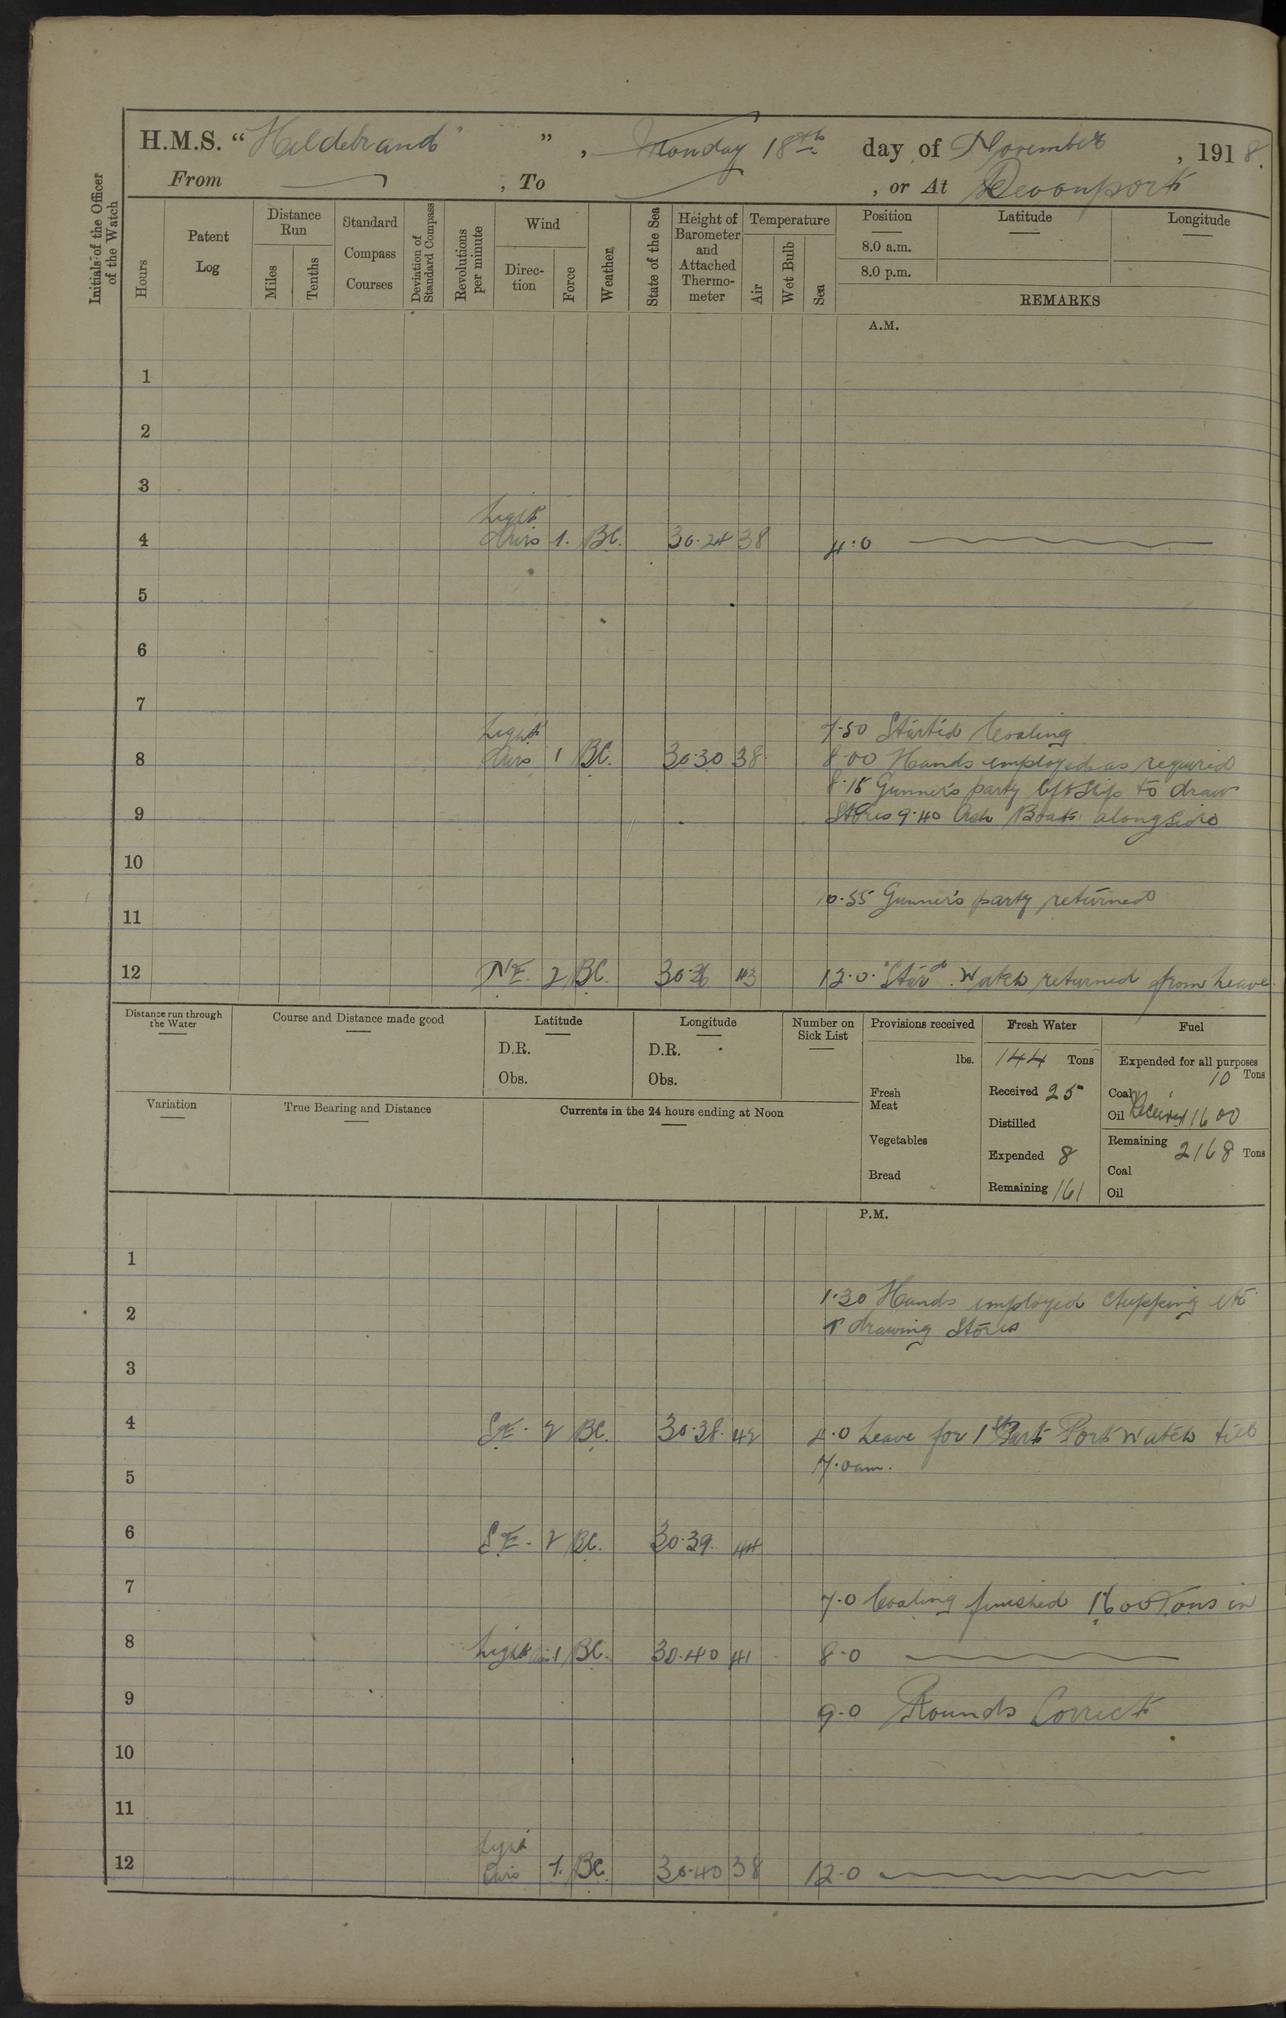 H.M.S. "Hildebrand", Monday 18th day of November, 1918.
From , To , or At Devonport
Initials of the Officer of the Watch
Hours
Patent Log
Distance Run
Miles
Tenths
Standard Compass Courses
Deviation of Standard Compass
Revolutions per minute
Wind
Direction
Force
Weather
State of the Sea
Height of Barometer and Attached Thermometer
Temperature
Air
Wet Bulb
Sea
Position
Latitude
Longitude
8.0 a.m.
8.0 p.m.
REMARKS
A.M.
1
2
3
Light
4 Airs 1. BC. 30.24 38 4.0
5
6
7
Light 7.50 Started Coaling
8 Airs 1 BC. 30.30 38 8.00 Hands employed as required
8.15 Gunner's party left ship to draw
9 Stores 9.40 Ash Boat alongside
10
10.55 Gunner's party returned
11
12 NE. 2 BC. 30.36 43 12.0. Starbd. Watch returned from Leave
Distance run through the Water
Course and Distance made good
Latitude
D.R.
Obs.
Longitude
D.R.
Obs.
Number on Sick List
Provisions received
lbs.
Fresh Meat
Vegetables
Bread
Fresh Water
144 Tons
Received 25
Distilled
Expended 8
Remaining 161
Fuel
Expended for all purposes
10 Tons
Coal
Oil Received 1600
Remaining 2168 Tons
Coal
Oil
Variation
True Bearing and Distance
Currents in the 24 hours ending at Noon
P.M.
1
1.30 Hands employed chipping etc
2
& drawing Stores
3
4 SE. 2 BC. 30.38. 42 4.0 Leave for 1st Part Port Watch till
7.0am.
5
6 SE. 2 BC. 30.39. 44
7 7.0 Coaling finished 1600 Tons in
8 Light Airs 1 BC. 30.40 41 8.0
9 9.0 Rounds Correct
10
11
Light
12 Airs 1. BC. 30.40 38 12.0